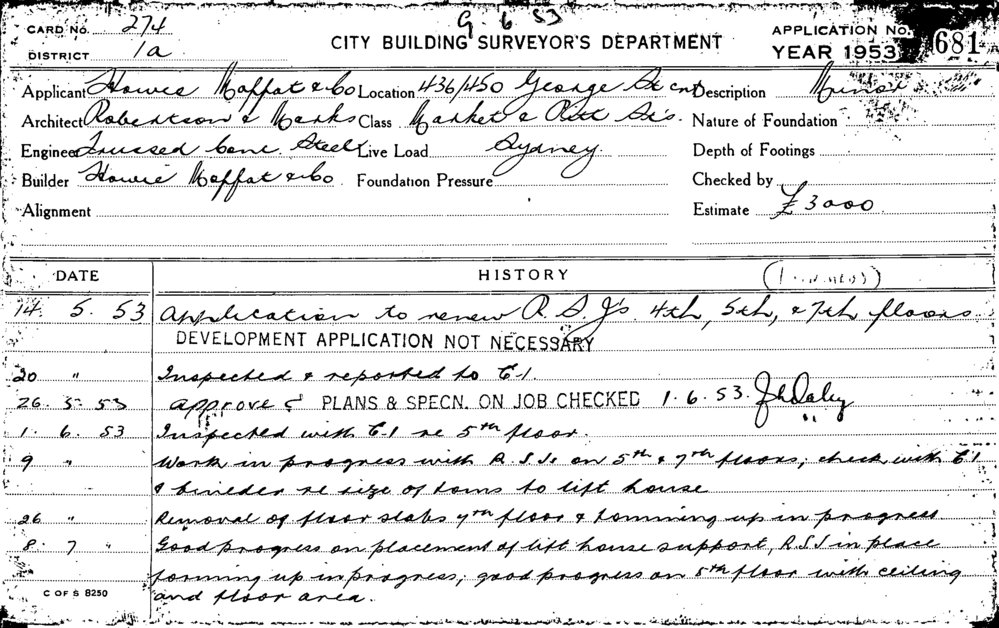 G. 6 53
CARD No. 274
DISTRICT 1a
CITY BUILDING SURVEYOR'S DEPARTMENT
APPLICATION No. 681
YEAR 1953
Applicant Howie Moffat & Co Location 436/450 George St cnr Description Minor
Architect Robertson & Marks Class Market & Pitt St's. Nature of Foundation
Engineer Trussed Conc. Steel Live Load Sydney Depth of Footings
Builder Howie Moffat & Co Foundation Pressure Checked by
Alignment Estimate £3000
DATE HISTORY
14. 5. 53 Application to renew R.S.J's. 4th, 5th, & 7th floors
DEVELOPMENT APPLICATION NOT NECESSARY
20 " Inspected & reported to C.I.
26. 5. 53 approved PLANS & SPECN. ON JOB CHECKED 1.6.53.
1. 6. 53 Inspected with C.I re 5th floor.
9 " Work in progress with R.S.Js on 5th & 7th floors; check with C.I
& builder re size of toms to lift house
26 " Removal of floor slabs 7th floor & tomming up in progress
8. 7 " Good progress on placement of lift house support, R.S.J in place
forming up in progress; good progress on 5th floor with ceiling
and floor area.
C OF S 8250